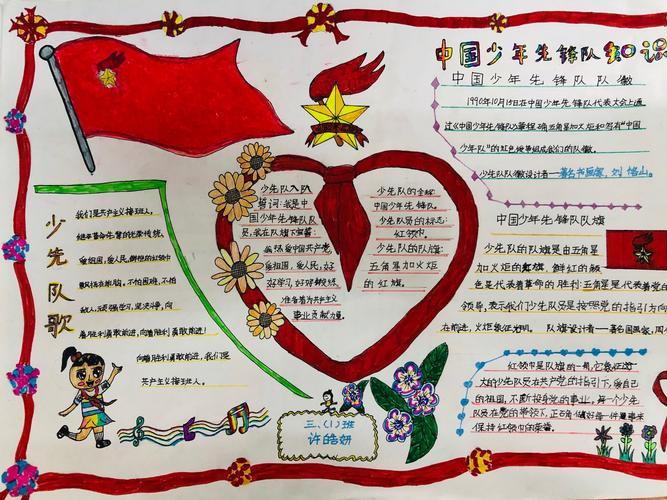 中国少年先锋队知识
中国少年先锋队队徽
1990年10月15日在中国少年先锋队代表大会上通
过《中国少年先锋队队章程》确五角星加火炬和写有"中国
少年队"的红色绶带组成我们的队徽。
少先队队徽设计者——著名书画家,刘恪山。
中国少年先锋队队旗
少先队的队旗是由五角星
加火炬的红旗,鲜红的颜
色是代表着革命的胜利;五角星代表着党的
领导,表示我们少先队员是按照党的指引方向
在前进,火炬象征光明。 队旗设计者——著名国画家,周
红领巾是队旗的一角,它象征
大的少先队员在共产党的指引下,爱自己
的祖国,不断投身党的事业,每一个少年
队员在党的带领下,正在每做好每一件事来
保持红领巾的荣誉。
少先队入队
誓词:我是中
国少年先锋队队
员,我在队旗下宣誓:
我热爱中国共产党,
爱祖国,爱人民,好
好学习,好好锻炼,
准备着为共产主义
事业贡献力量。
少先队的全称
中国少年先锋队。
少先队员的标志:
红领巾。
少先队的队旗:
五角星加火炬
的红旗。
少先队歌
我们是共产主义接班人,
继承革命先辈的光荣传统,
爱祖国,爱人民,鲜艳的红领巾
飘扬在前胸,不怕困难,不怕
敌人,顽强学习,坚决斗争,向
着胜利勇敢前进,向着胜利勇敢前进!
向着胜利勇敢前进,我们是
共产主义接班人。
三、(1)班
许皓妍